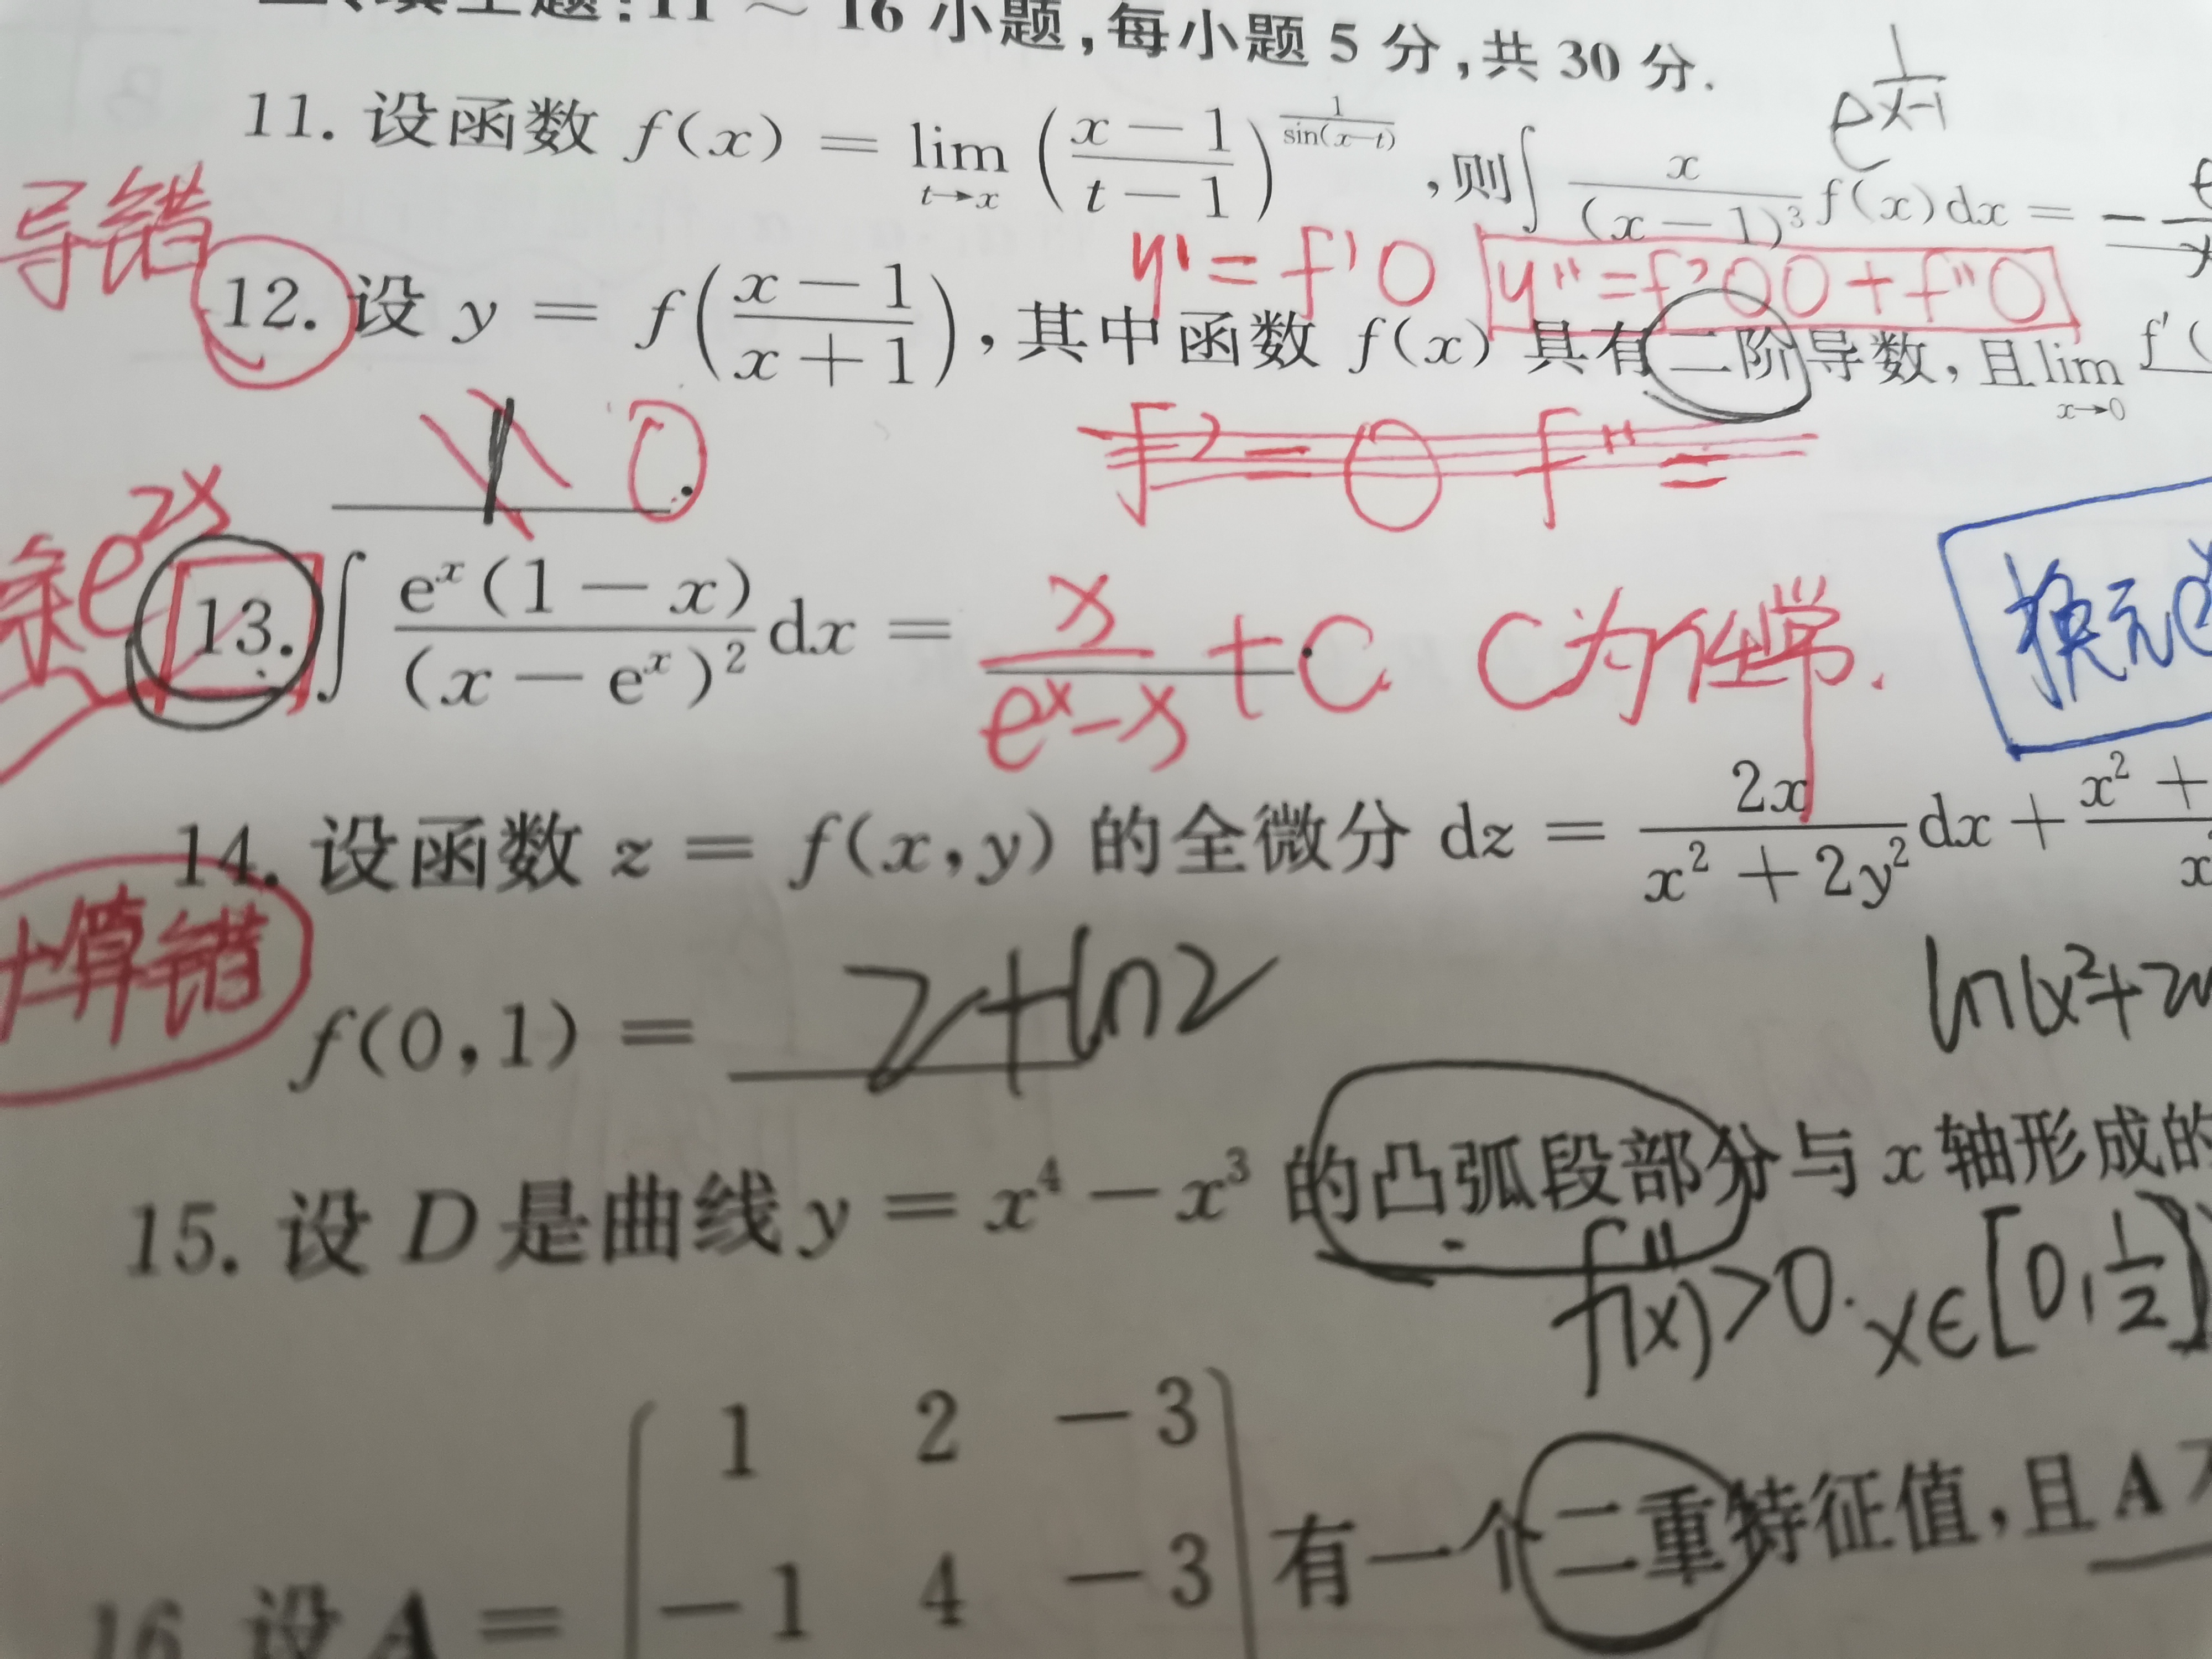 填空题:11 ~ 16 小题,每小题 5 分,共 30 分.
e^{\frac{1}{x-1}}
11. 设函数 f(x) = \lim_{t→x} (\frac{x-1}{t-1})^{\frac{1}{\sin(x-t)}},则∫\frac{x}{(x-1)^3}f(x)dx = -
导错
y' = f'() y'' = f'()() + f''()
12. 设 y = f(\frac{x-1}{x+1}),其中函数 f(x) 具有二阶导数,且\lim_{x→0} f'(
0.
f' = 0 f'' =
e^{2x}
13. ∫\frac{e^x(1-x)}{(x-e^x)^2}dx = \frac{x}{e^x-x} + C. C为任常.
换元
14. 设函数 z = f(x,y) 的全微分 dz = \frac{2x}{x^2+2y^2}dx + \frac{x^2+}{x}
计算错
f(0,1) = 2+ln2
ln(x^2+2
15. 设 D 是曲线 y = x^4 - x^3 的凸弧段部分与 x 轴形成的
f''(x)>0. x∈[0,\frac{1}{2}]
1 2 -3
-1 4 -3
16. 设 A = 有一个二重特征值,且 A